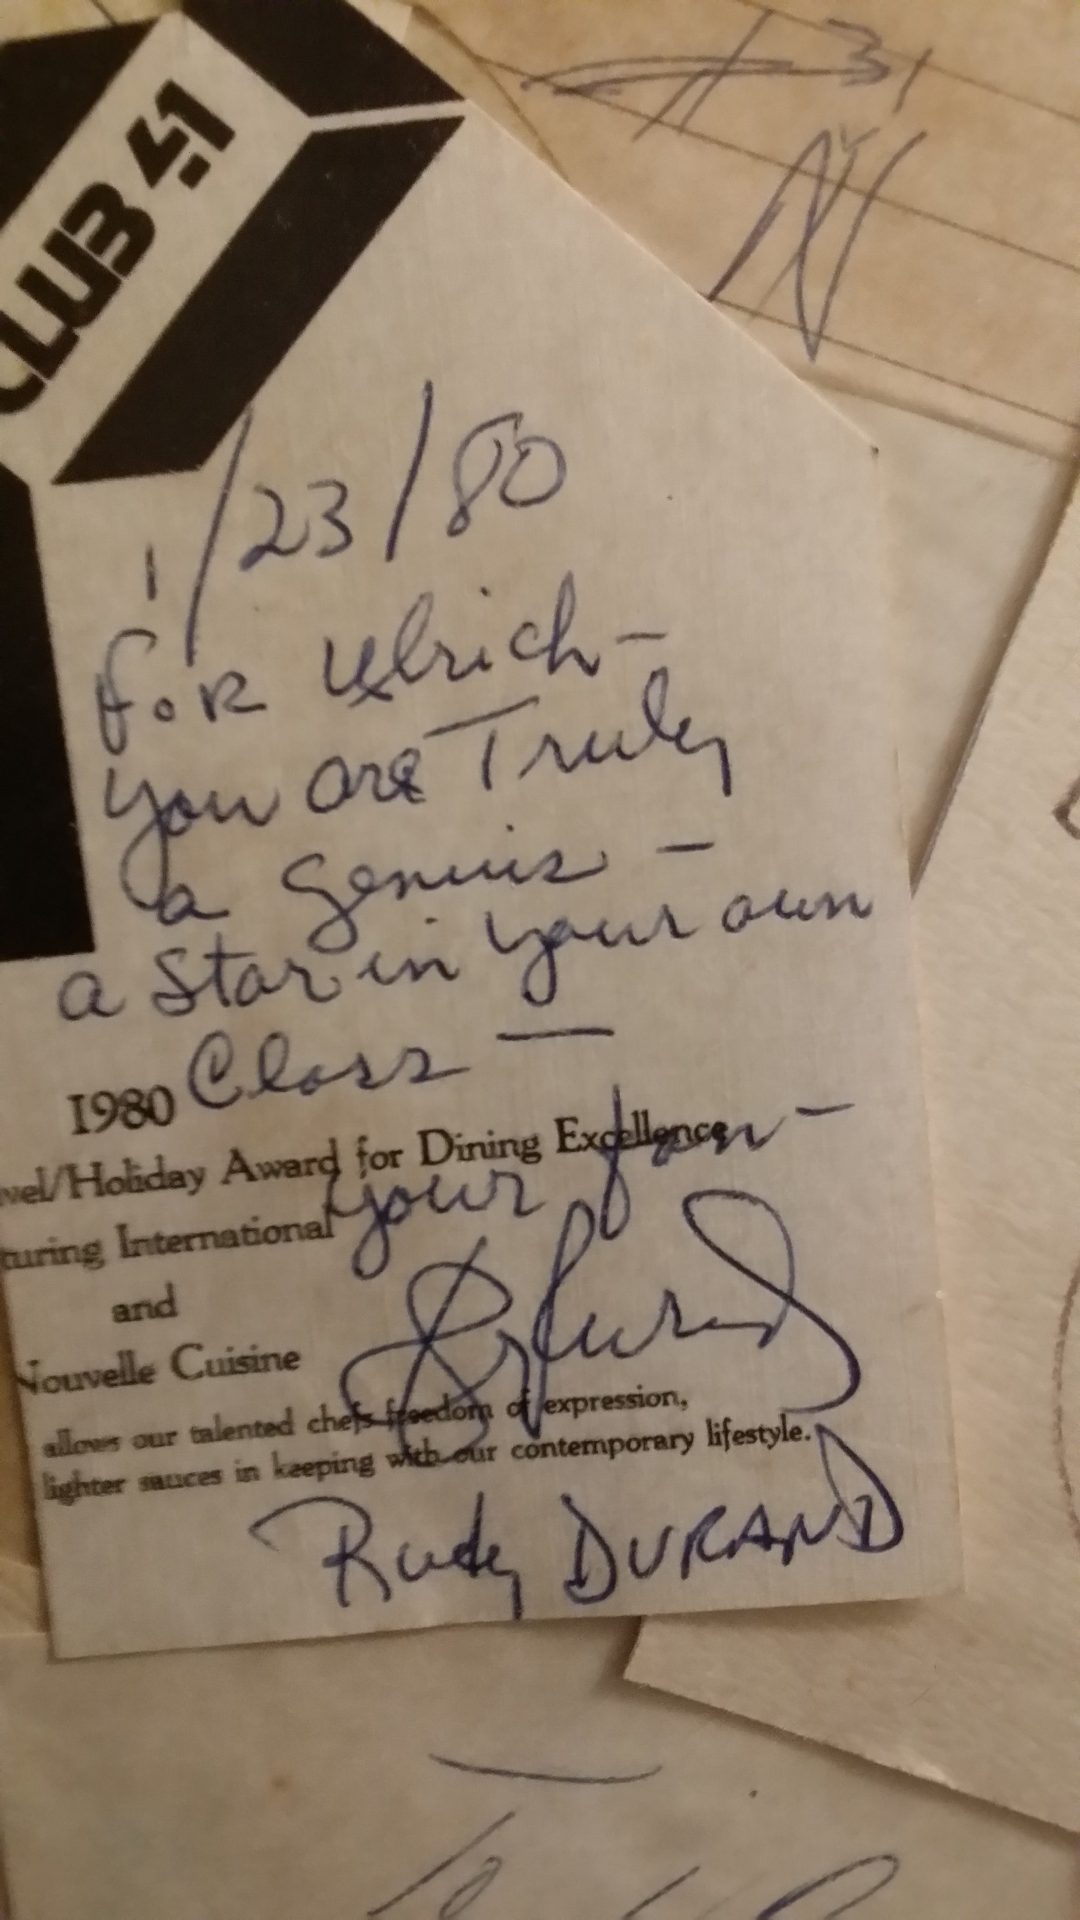 CLUB 41
1/23/80
For Ulrich -
You are Truly
a Genius -
a Star in your own
Class —
1980
vel/Holiday Award for Dining Excellence
your fan -
turing International
and
Nouvelle Cuisine
allows our talented chefs freedom of expression,
lighter sauces in keeping with our contemporary lifestyle.
Rudy DURAND